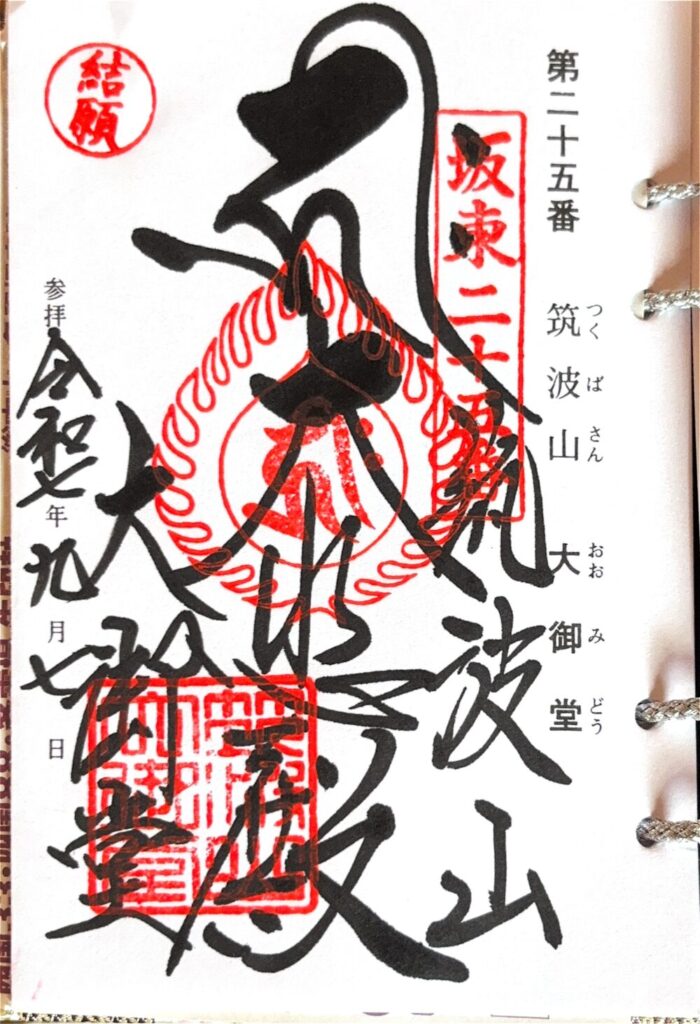 第二十五番 筑波山 大御堂
つくばさん おおみどう
坂東二十五番
筑波山
大悲殿
大御堂
結願
参拝 令和七年九月七日